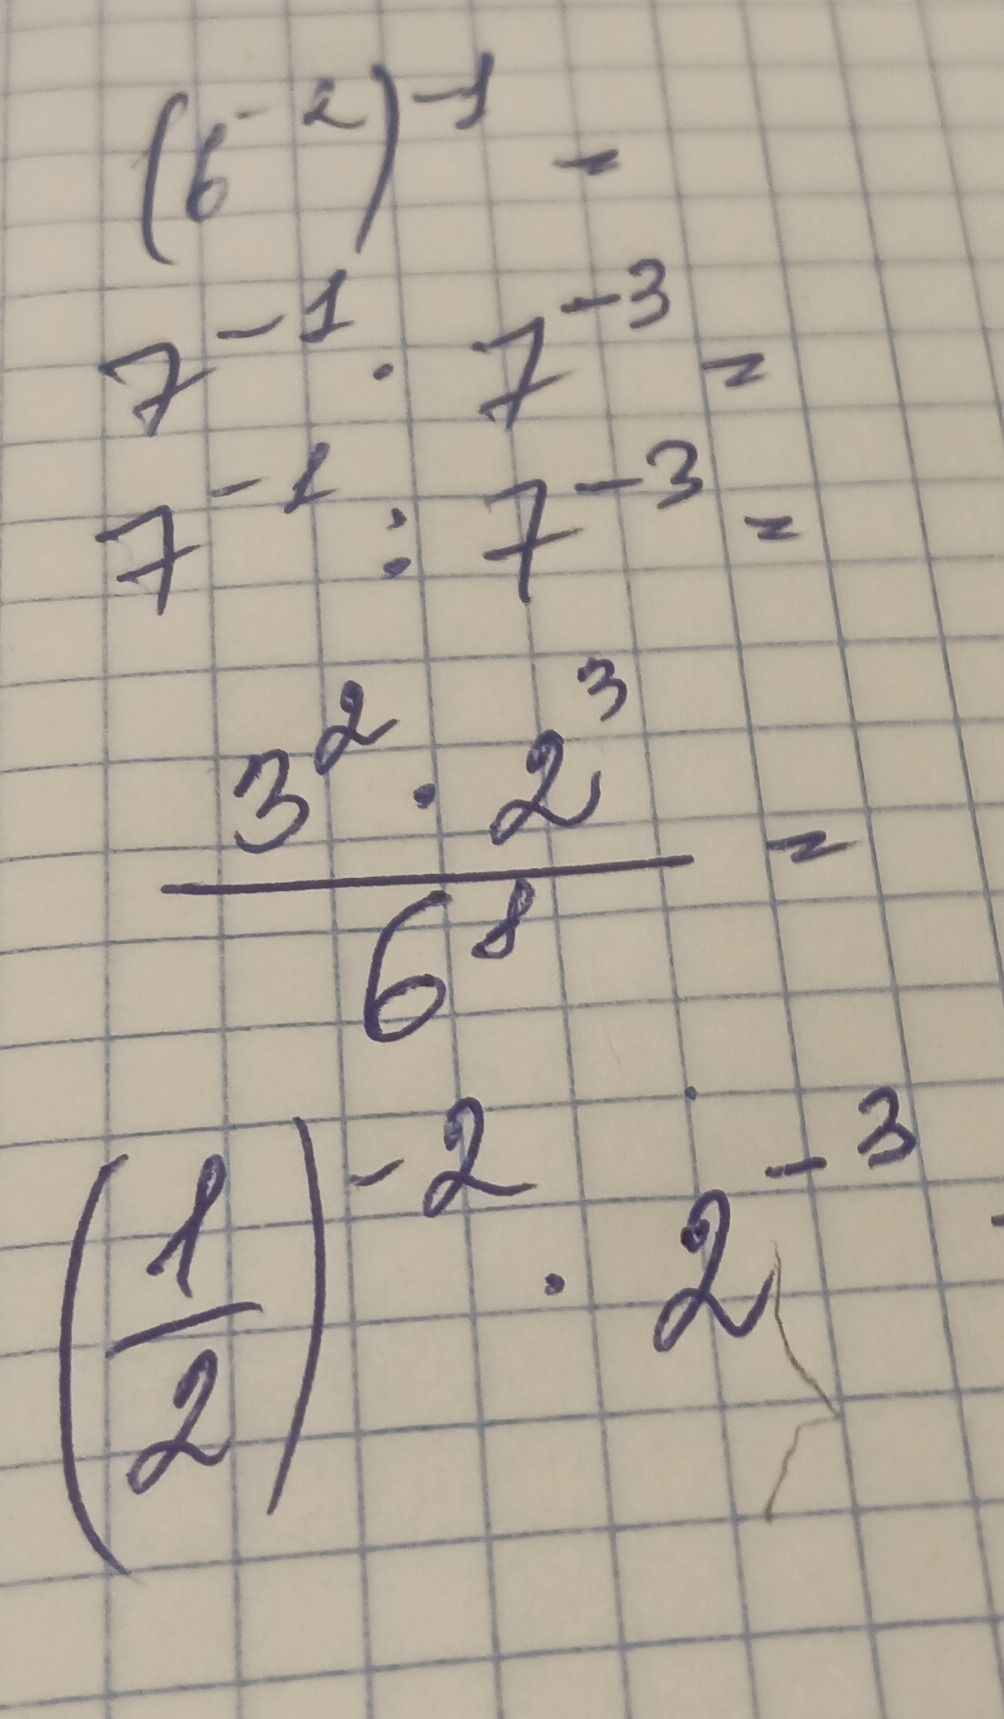 (6⁻²)⁻¹ =
7⁻¹ · 7⁻³ =
7⁻¹ : 7⁻³ =
3² · 2³
6⁸ =
(1/2)⁻² · 2⁻³ -